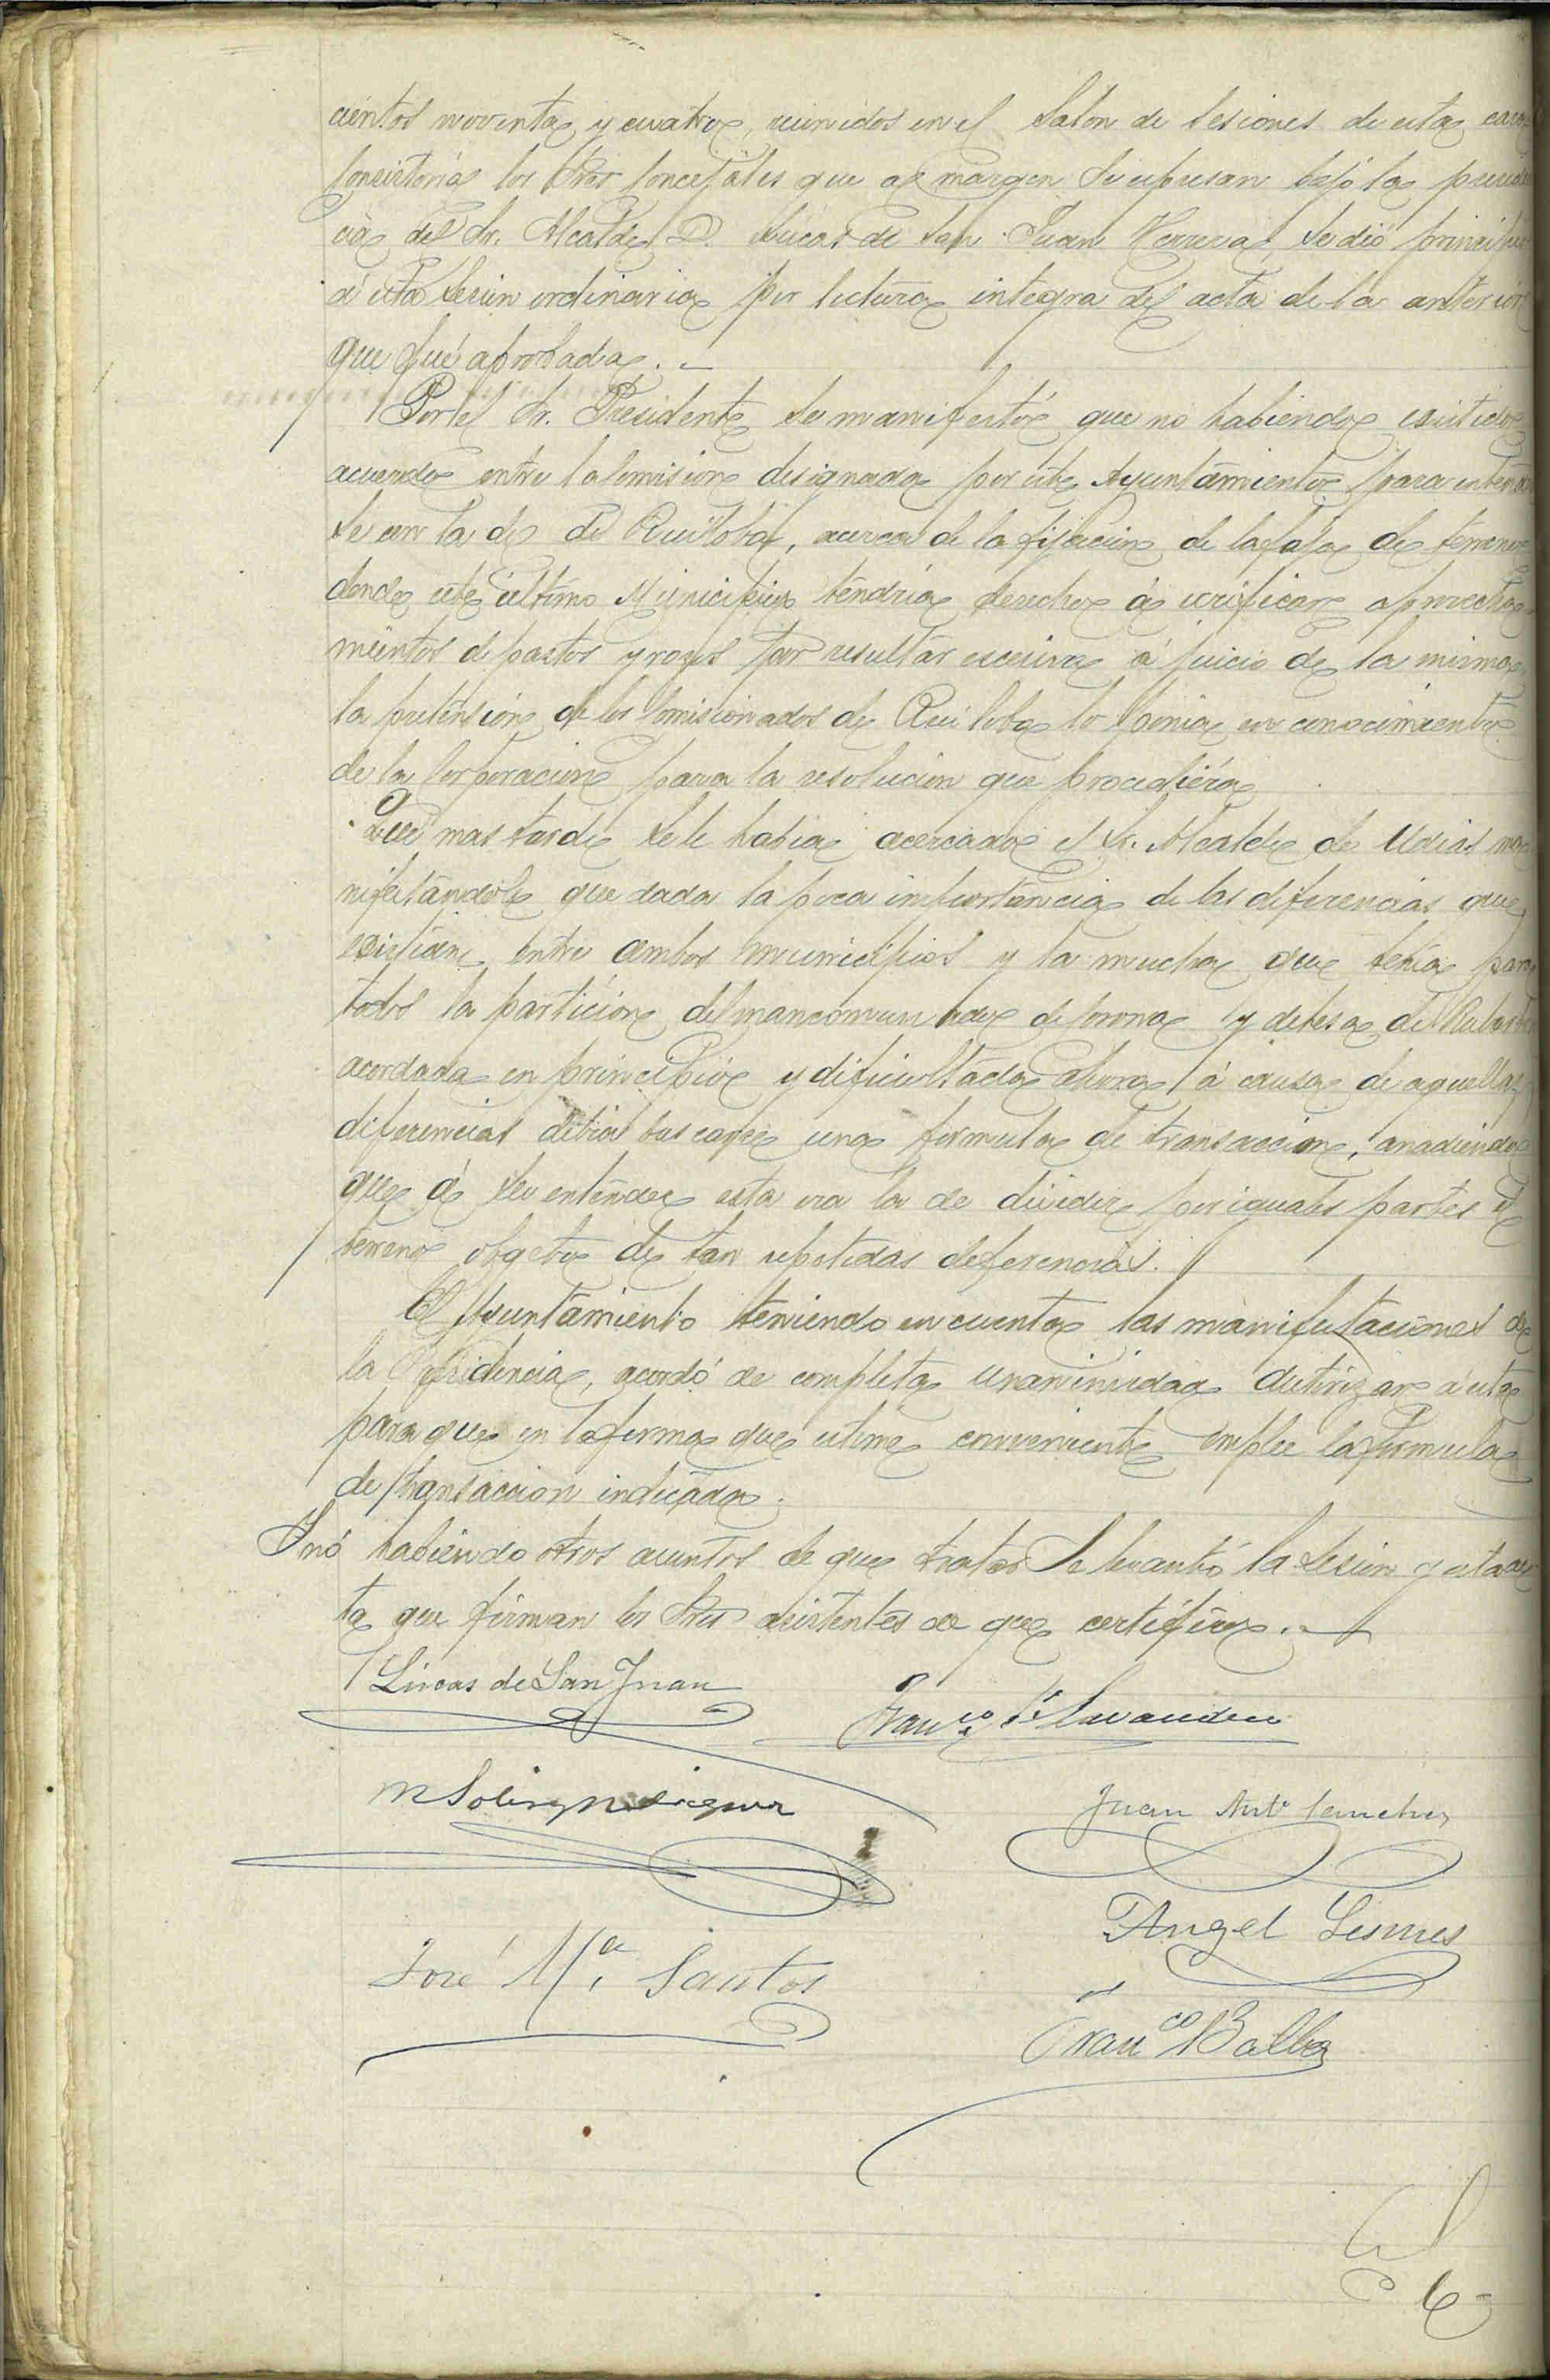 cientos noventa y cuatro, reunidos en el Salon de Sesiones de esta casa
Consistorial los Sres Concejales que al margen se espresan bajo la presiden
cia del Sr. Alcalde D. Lucas de San Juan Herrera, se dió principio
á esta Sesion ordinaria por lectura integra del acta de la anterior
que fué aprobada. —
Por el Sr. Presidente se manifestó que no habiendo existido
acuerdo entre la Comision designada por este Ayuntamiento para entender
se con la de de Ruiloba, acerca de la fijacion de la faja de terreno
donde este último Municipio tendria derecho á verificar aprovecha
mientos de pastos y rozos por resultar escesiva á juicio de la misma
la pretension de los Comisionados de Ruiloba lo ponia en conocimiento
de la Corporacion para la resolucion que procediera
Que mas tarde se le habia acercado el Sr. Alcalde de Udias ma
nifestándole que dada la poca importancia de las diferencias que
existian entre ambos municipios y la mucha que tenia para
todos la particion del mancomunado de Corona y dehesa de
acordada en principio y dificultada ahora á causa de aquellas
diferencias debia buscarse una formula de transaccion, anadiendo
que á su entender esta era la de dividir por iguales partes el
terreno obgeto de tan repetidas diferencias.
El Ayuntamiento teniendo en cuenta las manifestaciones de
la Presidencia, acordó de completa unanimidad autorizar á esta
para que en la forma que estime conveniente emplee la formula
de transaccion indicada.
Y nó habiendo otros asuntos de que tratar Se levantó la Sesion y esta ac
ta que firman los Sres asistentes de que certifico. —
Lucas de San Juan
Franco
M Solis
Juan Anto Sanchez
Angel Lesmes
José Ma. Santos
Franco Balbas